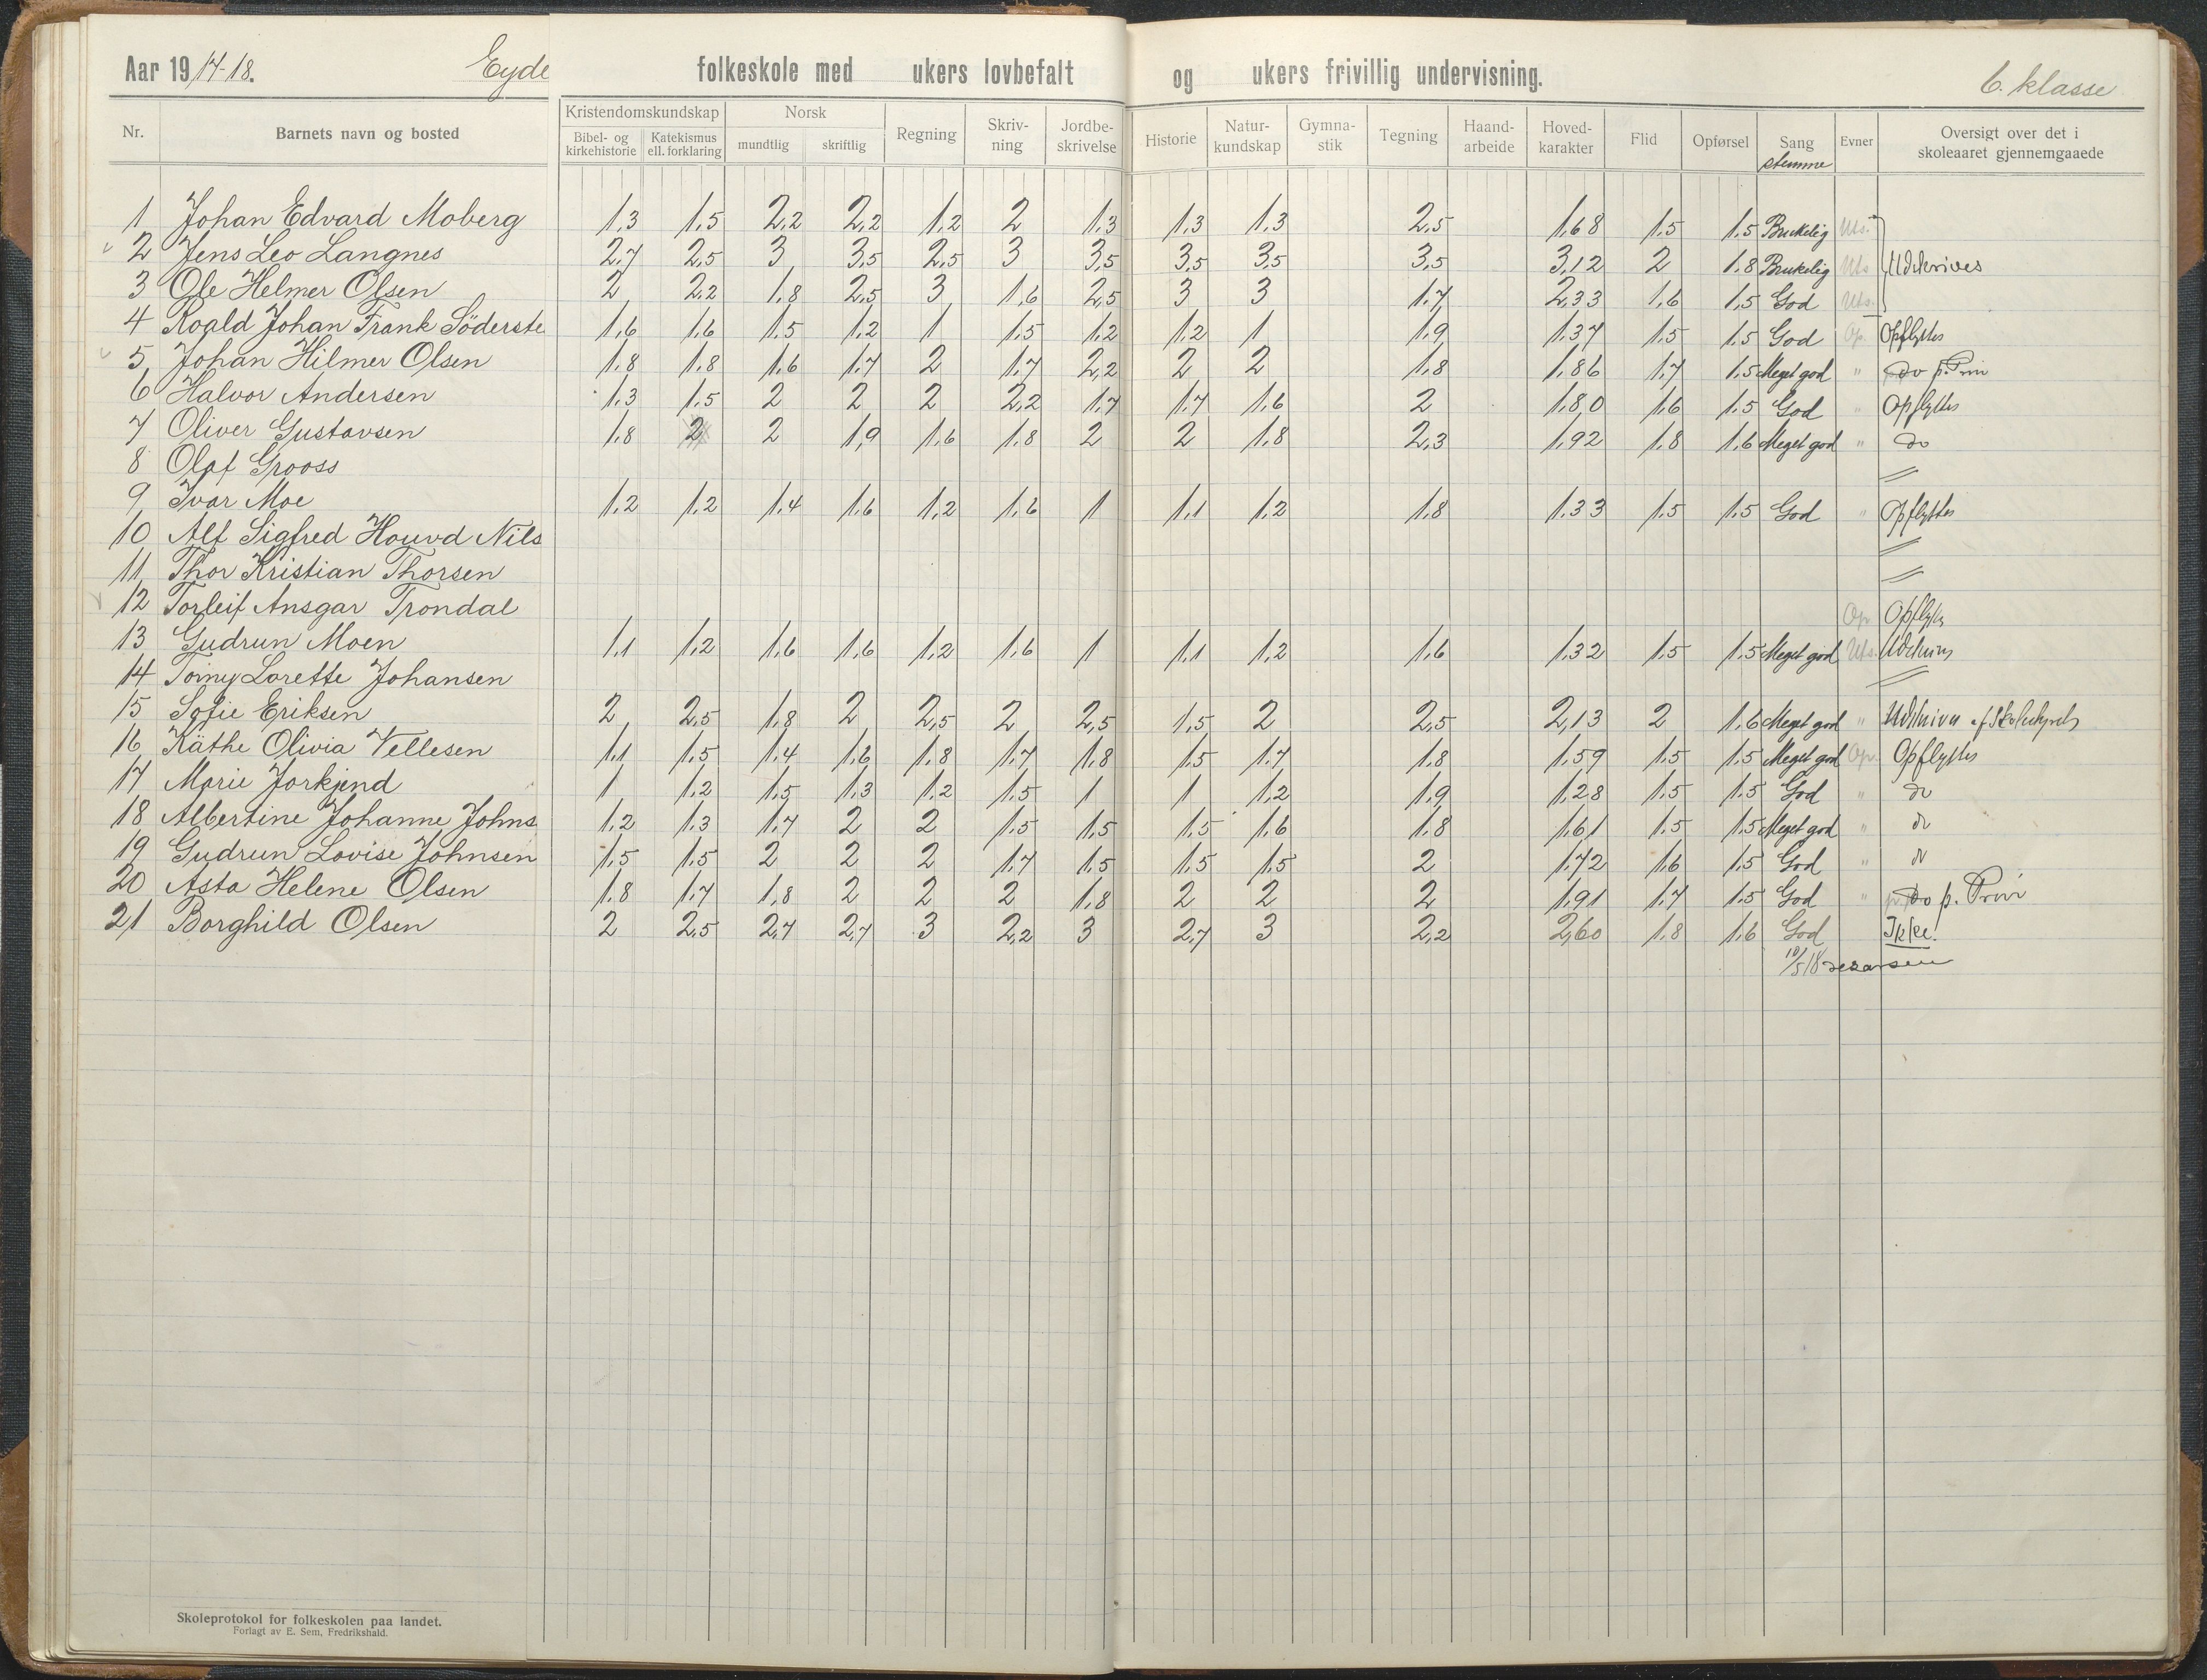 Aar 1917-18. Eyde folkeskole med ukers lovbefalt og ukers frivillig undervisning. 6. klasse
Nr. Barnets navn og bosted Kristendomskundskap Bibel- og kirkehistorie Katekismus ell. forklaring Norsk mundtlig skriftlig Regning Skriv-ning Jordbe-skrivelse Historie Natur-kundskap Gymna-stik Tegning Haand-arbeide Hoved-karakter Flid Opførsel Sang stemme Evner Oversigt over det i skoleaaret gjennemgaaede
1 Johan Edvard Moberg 1,3 1,5 2,2 2,2 1,2 2 1,3 1,3 1,3 2,5 1,68 1,5 1,5 Brukelig Uts.
2 Jens Leo Langnes 2,7 2,5 3 3,5 2,5 3 3,5 3,5 3,5 3,5 3,12 2 1,8 Brukelig Uts Udskrives
3 Ole Helmer Olsen 2 2,2 1,8 2,5 3 1,6 2,5 3 3 1,7 2,33 1,6 1,5 God Uts.
4 Roald Johan Frank Söderste 1,6 1,6 1,5 1,2 1 1,5 1,2 1,2 1 1,9 1,37 1,5 1,5 God Op. Opflyttes
5 Johan Hilmer Olsen 1,8 1,8 1,6 1,7 2 1,7 2,2 2 2 1,8 1,86 1,7 1,5 Meget god " do p.
6 Halvor Andersen 1,3 1,5 2 2 2 2,2 1,7 1,7 1,6 2 1,80 1,6 1,5 God " Opflyttes
7 Oliver Gustavsen 1,8 2 2 1,9 1,6 1,8 2 2 1,8 2,3 1,92 1,8 1,6 Meget god " do
8 Olaf Grooss
9 Ivar Moe 1,2 1,2 1,4 1,6 1,2 1,6 1 1,1 1,2 1,8 1,33 1,5 1,5 God " Opflyttes
10 Alf Sigfred Houvd Nils
11 Thor Kristian Thorsen
12 Torleif Ansgar Trondal Op. Opflyttes
13 Gudrun Moen 1,1 1,2 1,6 1,6 1,2 1,6 1 1,1 1,2 1,6 1,32 1,5 1,5 Meget god Uts. Udskrives
14 Tomy Lorette Johansen
15 Sofie Eriksen 2 2,5 1,8 2 2,5 2 2,5 1,5 2 2,5 2,13 2 1,6 Meget god " Udskrives af Skolestyret
16 Käthe Olivia Vellesen 1,1 1,5 1,4 1,6 1,8 1,7 1,8 1,5 1,7 1,8 1,59 1,5 1,5 Meget god Op. Opflyttes
17 Marie Jorkjend 1 1,2 1,5 1,3 1,2 1,5 1 1 1,2 1,9 1,28 1,5 1,5 God " do
18 Albertine Johanne Johns 1,2 1,3 1,7 2 2 1,5 1,5 1,5 1,6 1,8 1,61 1,5 1,5 Meget god " do
19 Gudrun Lovise Johnsen 1,5 1,5 2 2 2 1,7 1,5 1,5 1,5 2 1,72 1,6 1,5 God " do
20 Asta Helene Olsen 1,8 1,7 1,8 2 2 2 1,8 2 2 2 1,91 1,7 1,5 God " do p.
21 Borghild Olsen 2 2,5 2,7 2,7 3 2,2 3 2,7 3 2,2 2,60 1,8 1,6 God Ikke.
10/5 18
Skoleprotokol for folkeskolen paa landet.
Forlagt av E. Sem, Fredrikshald.